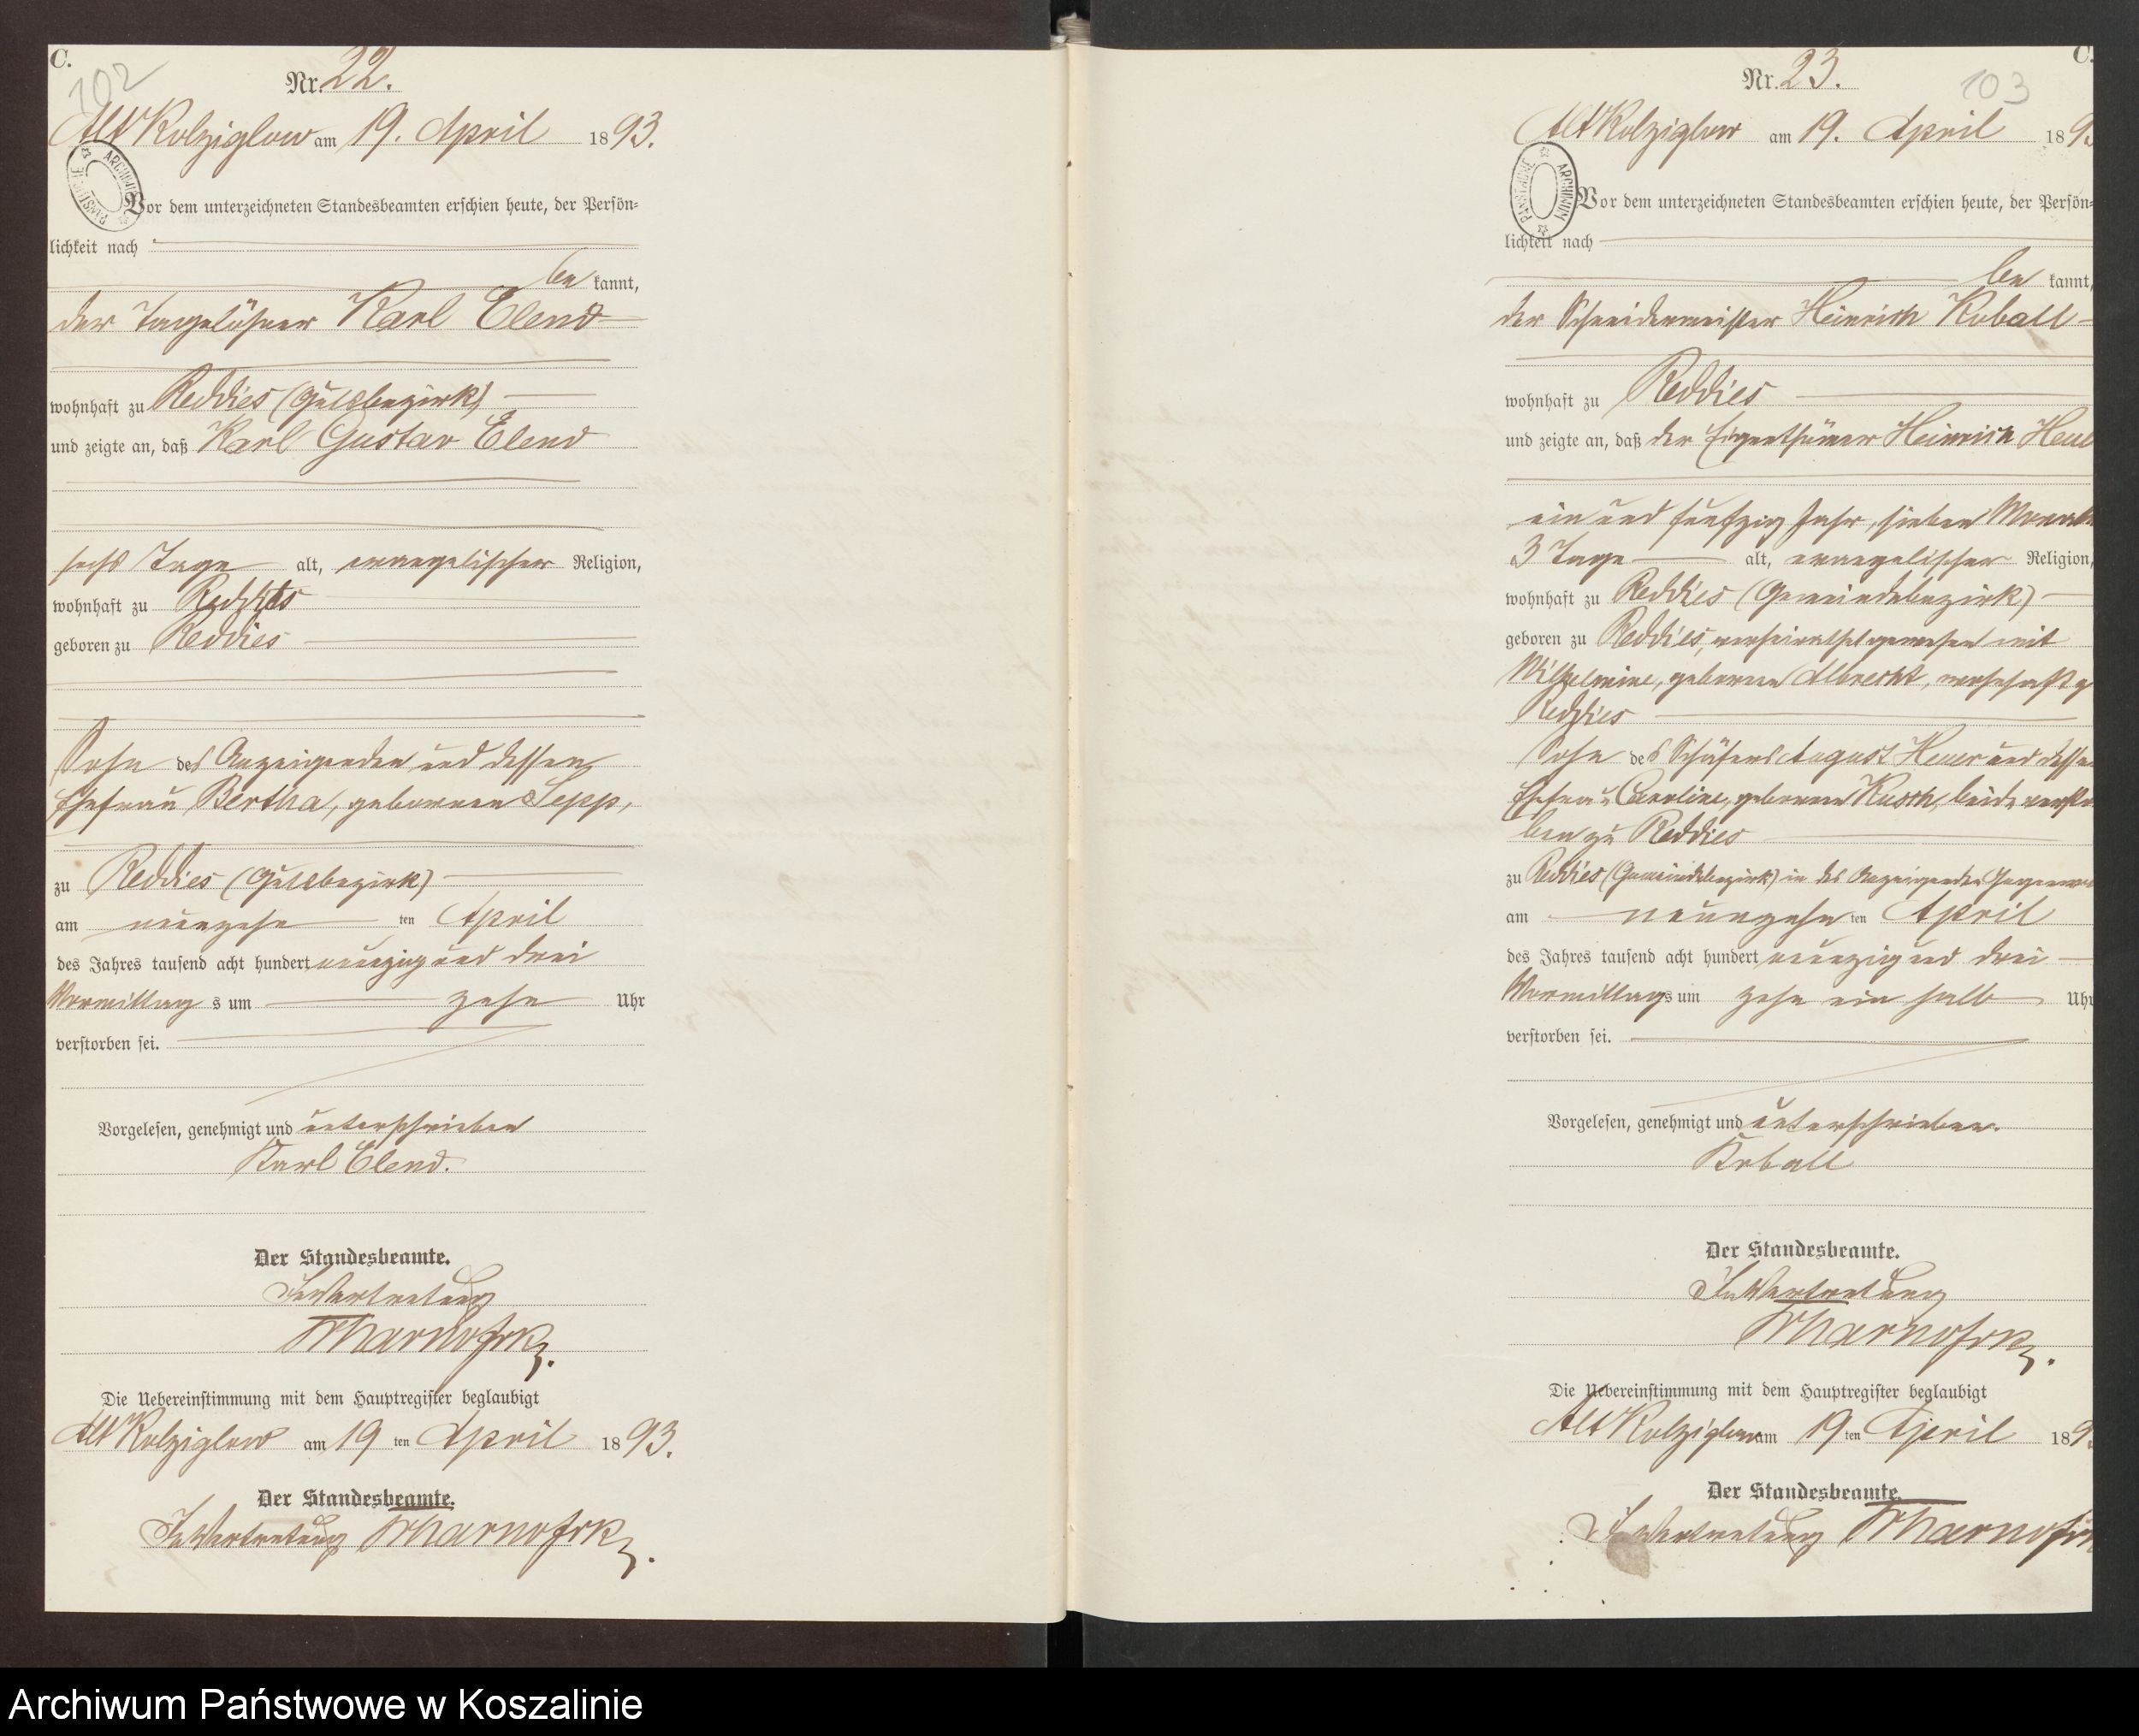 C.
102
Nr. 22.
Alt Kolziglow am 19. April 1893.
ARCHIWUM PAŃSTWOWE
Vor dem unterzeichneten Standesbeamten erschien heute, der Persön-
lichkeit nach
be kannt,
der Tagelöhner Karl Elend
wohnhaft zu Reddies (Gutsbezirk)
und zeigte an, daß Karl Gustav Elend
sechs Tage alt, evangelischer Religion,
wohnhaft zu Reddies
geboren zu Reddies
Sohn des Anzeigenden und dessen
Ehefrau Bertha, geborenen Lepp,
zu Reddies (Gutsbezirk)
am neunzehn ten April
des Jahres tausend acht hundert neunzig und drei
Vormittag s um zehn Uhr
verstorben sei.
Vorgelesen, genehmigt und unterschrieben
Karl Elend.
Der Standesbeamte.
In Vertretung
Die Uebereinstimmung mit dem Hauptregister beglaubigt
Alt Kolziglow am 19 ten April 1893.
Der Standesbeamte.
In Vertretung
C.
103
Nr. 23.
Alt Kolziglow am 19. April 189
ARCHIWUM PAŃSTWOWE
Vor dem unterzeichneten Standesbeamten erschien heute, der Persön-
lichkeit nach
be kannt,
der Schneidermeister Heinrich Kuball
wohnhaft zu Reddies
und zeigte an, daß der Eigenthümer Heinrich Heue
ein und fünfzig Jahr, sieben Monate
3 Tage alt, evangelischer Religion,
wohnhaft zu Reddies (Gemeindebezirk)
geboren zu Reddies, verheirathet gewesen mit
Wilhelmine, geborenen Albrecht, wohnhaft z
Reddies
Sohn des Schäfers August Heuer und dessen
Ehefrau Caroline, geborenen Kusch, beide verstor
ben zu Reddies
zu Reddies (Gemeindebezirk) in des Anzeigenden Gegenwa
am neunzehn ten April
des Jahres tausend acht hundert neunzig und drei
Vormittags um zehn ein halb Uhr
verstorben sei.
Vorgelesen, genehmigt und unterschrieben.
Kuball
Der Standesbeamte.
In Vertretung
Die Uebereinstimmung mit dem Hauptregister beglaubigt
Alt Kolziglow am 19 ten April 189
Der Standesbeamte.
In Vertretung
Archiwum Państwowe w Koszalinie